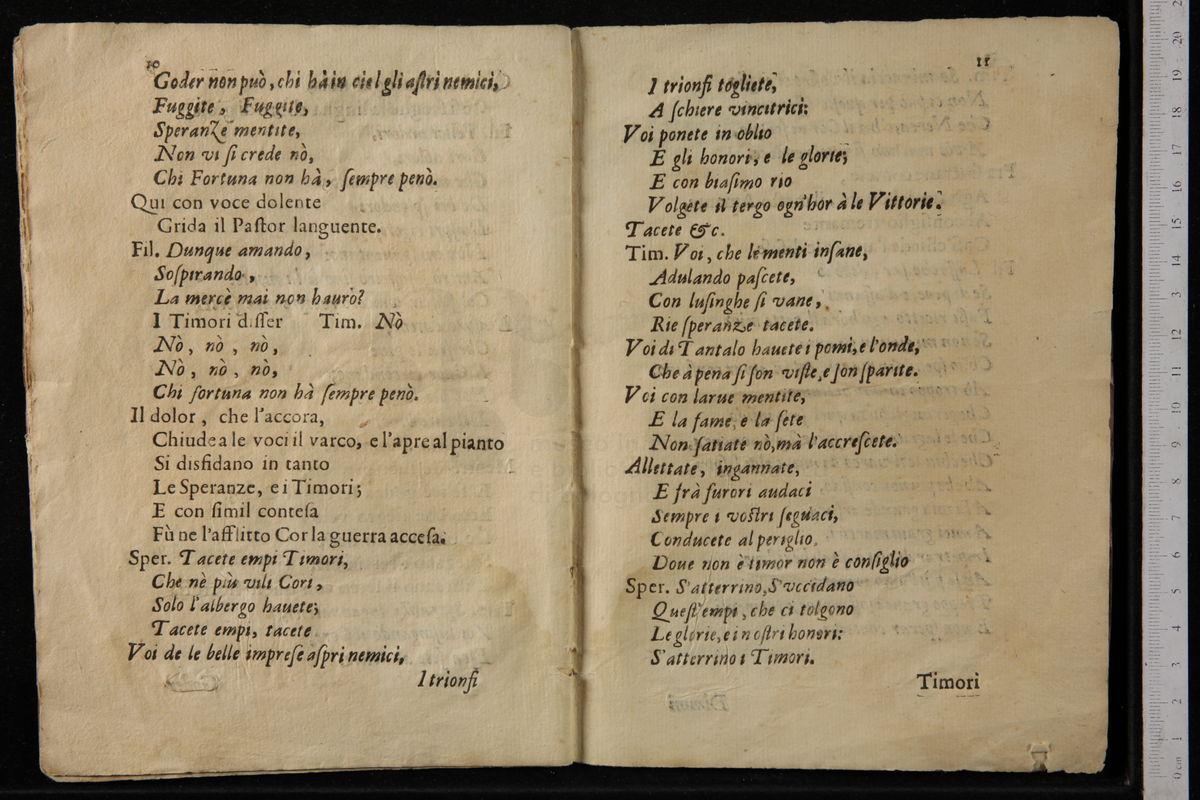 10
Goder non può, chi hà in ciel gli aſtri nemici,
Fuggite, Fuggite,
Speranze mentite,
Non vi ſi crede nò,
Chi Fortuna non hà, ſempre penò.
Qui con voce dolente
Grida il Paſtor languente.
Fil. Dunque amando,
Soſpirando,
La mercè mai non haurò?
I Timori diſſer Tim. Nò
Nò, nò, nò,
Nò, nò, nò,
Chi fortuna non hà ſempre penò.
Il dolor, che l'accora,
Chiude a le voci il varco, e l'apre al pianto
Si disfidano in tanto
Le Speranze, e i Timori;
E con ſimil conteſa
Fù ne l'afflitto Cor la guerra acceſa.
Sper. Tacete empi Timori,
Che nè più vili Cori,
Solo l'albergo hauete;
Tacete empi, tacete
Voi de le belle impreſe aſpri nemici,
I trionfi
11
I trionfi togliete,
A ſchiere vincitrici:
Voi ponete in oblio
E gli honori, e le glorie;
E con biaſimo rio
Volgete il tergo ogn'hor à le Vittorie.
Tacete &c.
Tim. Voi, che le menti inſane,
Adulando paſcete,
Con luſinghe ſi vane,
Rie ſperanze tacete.
Voi di Tantalo hauete i pomi, e l'onde,
Che à pena ſi ſon viſte, e ſon ſparite.
Voi con larue mentite,
E la fame, e la ſete
Non ſatiate nò, mà l'accreſcete.
Allettate, ingannate,
E frà furori audaci
Sempre i voſtri ſeguaci,
Conducete al periglio,
Doue non è timor non è conſiglio
Sper. S'atterrino, S'vccidano
Queſt'empi, che ci tolgono
Le glorie, e i noſtri honori:
S'atterrino i Timori.
Timori